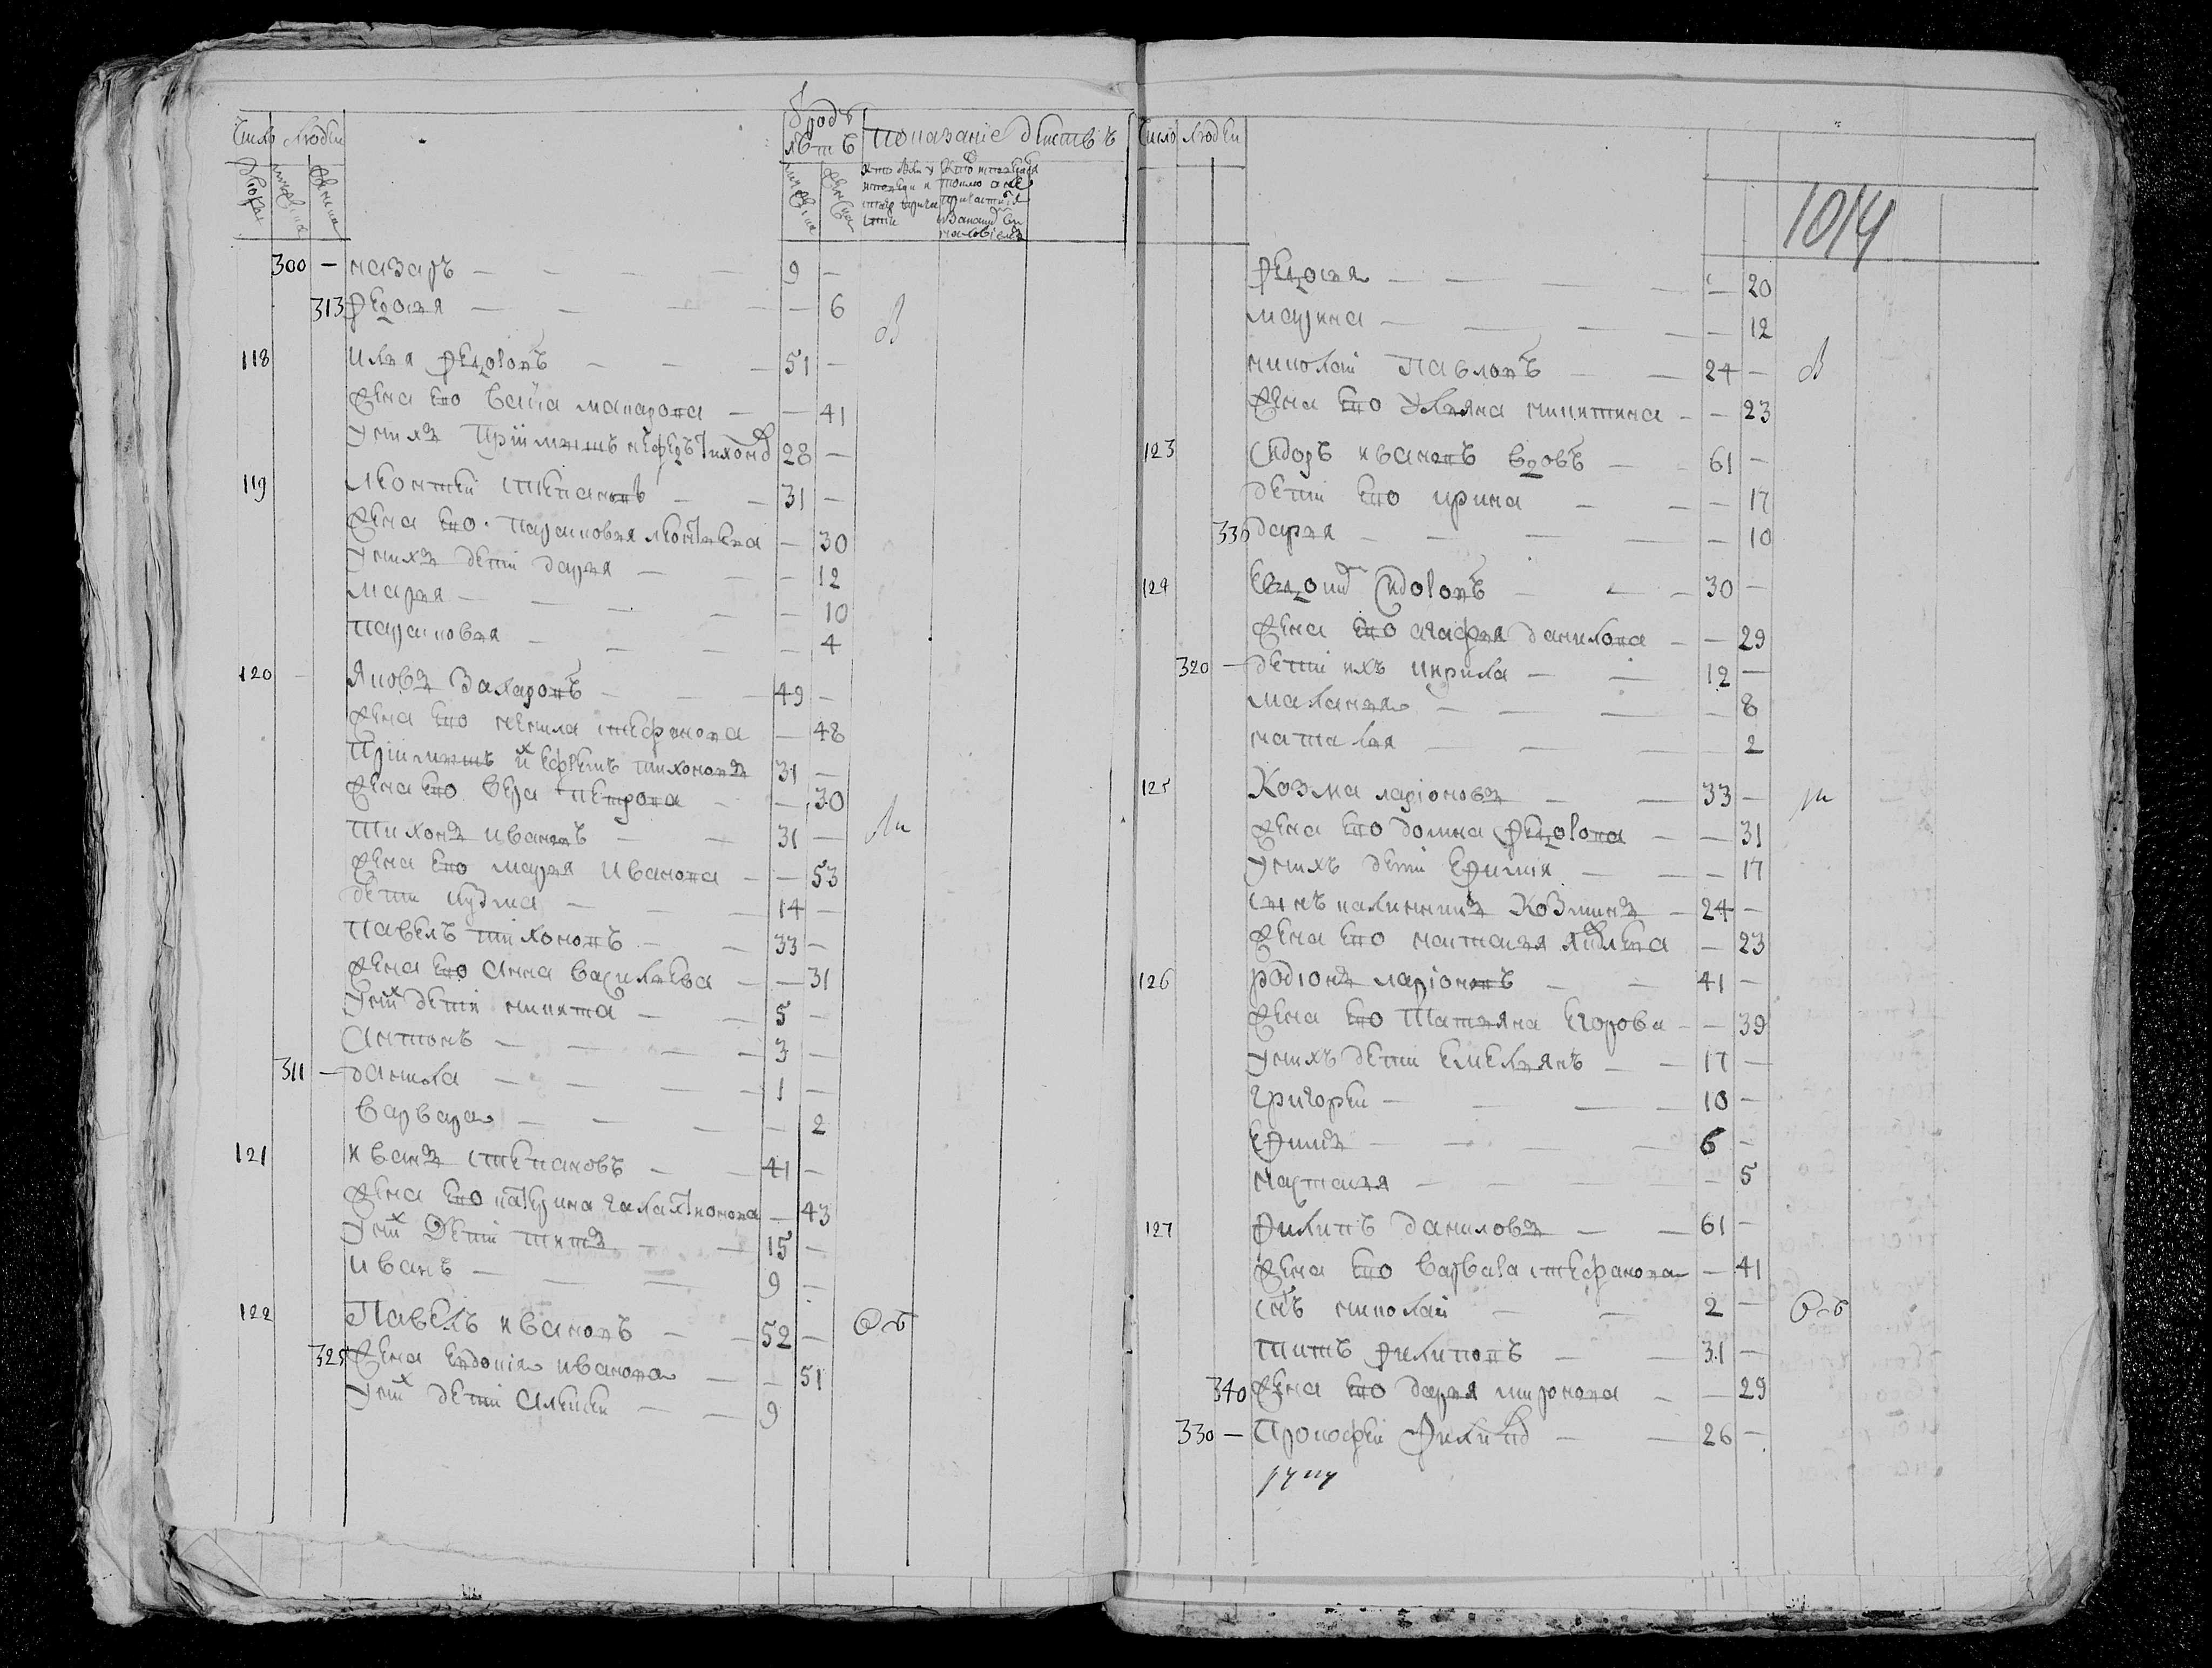 Число людей
Дворов
мужеска
женска
В родѣ
лѣтъ
показаніе действъ
мужеска
женска
300 — назаръ — 9 —
313 федосья — — 6
118 илья федоровъ — 51 —
жена ево макарова — — 41
у нихъ приимышъ 28 —
119 леонтей степановъ — 31 —
жена ево парасковья — 30
у нихъ дети дарья — — 12
марья — — 10
парасковья — — 4
120 яковъ захаровъ — 49 —
жена ево ненила стефанова — 48
приимышъ их ефремъ тихоновъ 31 —
жена ево вера петрова — — 30
тихонъ ивановъ — 31 —
жена ево марья иванова — — 53
дети кузма — 14 —
павелъ тихоновъ — 33 —
жена ево анна васильева — — 31
у них дети никита — 5 —
антонъ — 3 —
311 — данила — 1 —
варвара — — 2
121 иванъ степановъ — 41 —
жена ево катерина галактионова — 43
у них дети титъ — 15 —
иванъ — 9 —
122 Павелъ ивановъ — 52 —
325 жена евдокія иванова — — 51
у них дети алексей — 9
Число людей
1014
федосья — — 20
марина — — 12
николай павловъ — 24 —
жена ево ульяна никитина — — 23
123 сидоръ ивановъ вдовъ — 61 —
дети ево ирина — — 17
330 дарья — — 10
124 сидоровъ — 30 —
жена ево агафья данилова — — 29
320 — дети ихъ кирила — 12 —
маланья — — 8
наталья — — 2
125 Козма ларіоновъ — 33 —
жена ево домна федорова — — 31
у нихъ дети ефимія — — 17
сынъ калинникъ козминъ — 24 —
жена ево настасья — 23
126 родіонъ ларіоновъ — 41 —
жена ево татьяна егорова — — 39
у нихъ дети емельянъ — 17 —
григорей — 10 —
ефимъ — 6 —
настасья — — 5
127 филипъ даниловъ — 61 —
жена ево варвара стефанова — 41
снъ николай — 2 —
титъ филиповъ — 31 —
340 жена ево дарья миронова — — 29
330 — прокофей филипо — 26 —